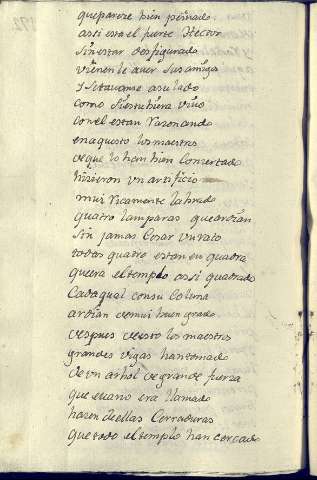 que pareze bien peinado
assi esta el fuerte Hector
sin estar desfigurado
vienenle a ver sus amigos
y sentavanse a su lado
como si estubiera vivo
con el estan razonando
en aquesto los maestros
de que lo han bien conzertado
hizieron vn artificio
mui ricamente labrado
quatro lamparas que ardian
sin jamas cesar vn rato
todas quatro estan en quadra
que era el templo assi quadrado
cada qual con su coluna
ardian de mui buen grado
despues de esto los maestros
grandes vigas han tomado
de vn arbol de grande fuerza
que evano era llamado
hazen de ellas cerraduras
que todo el templo han cercado